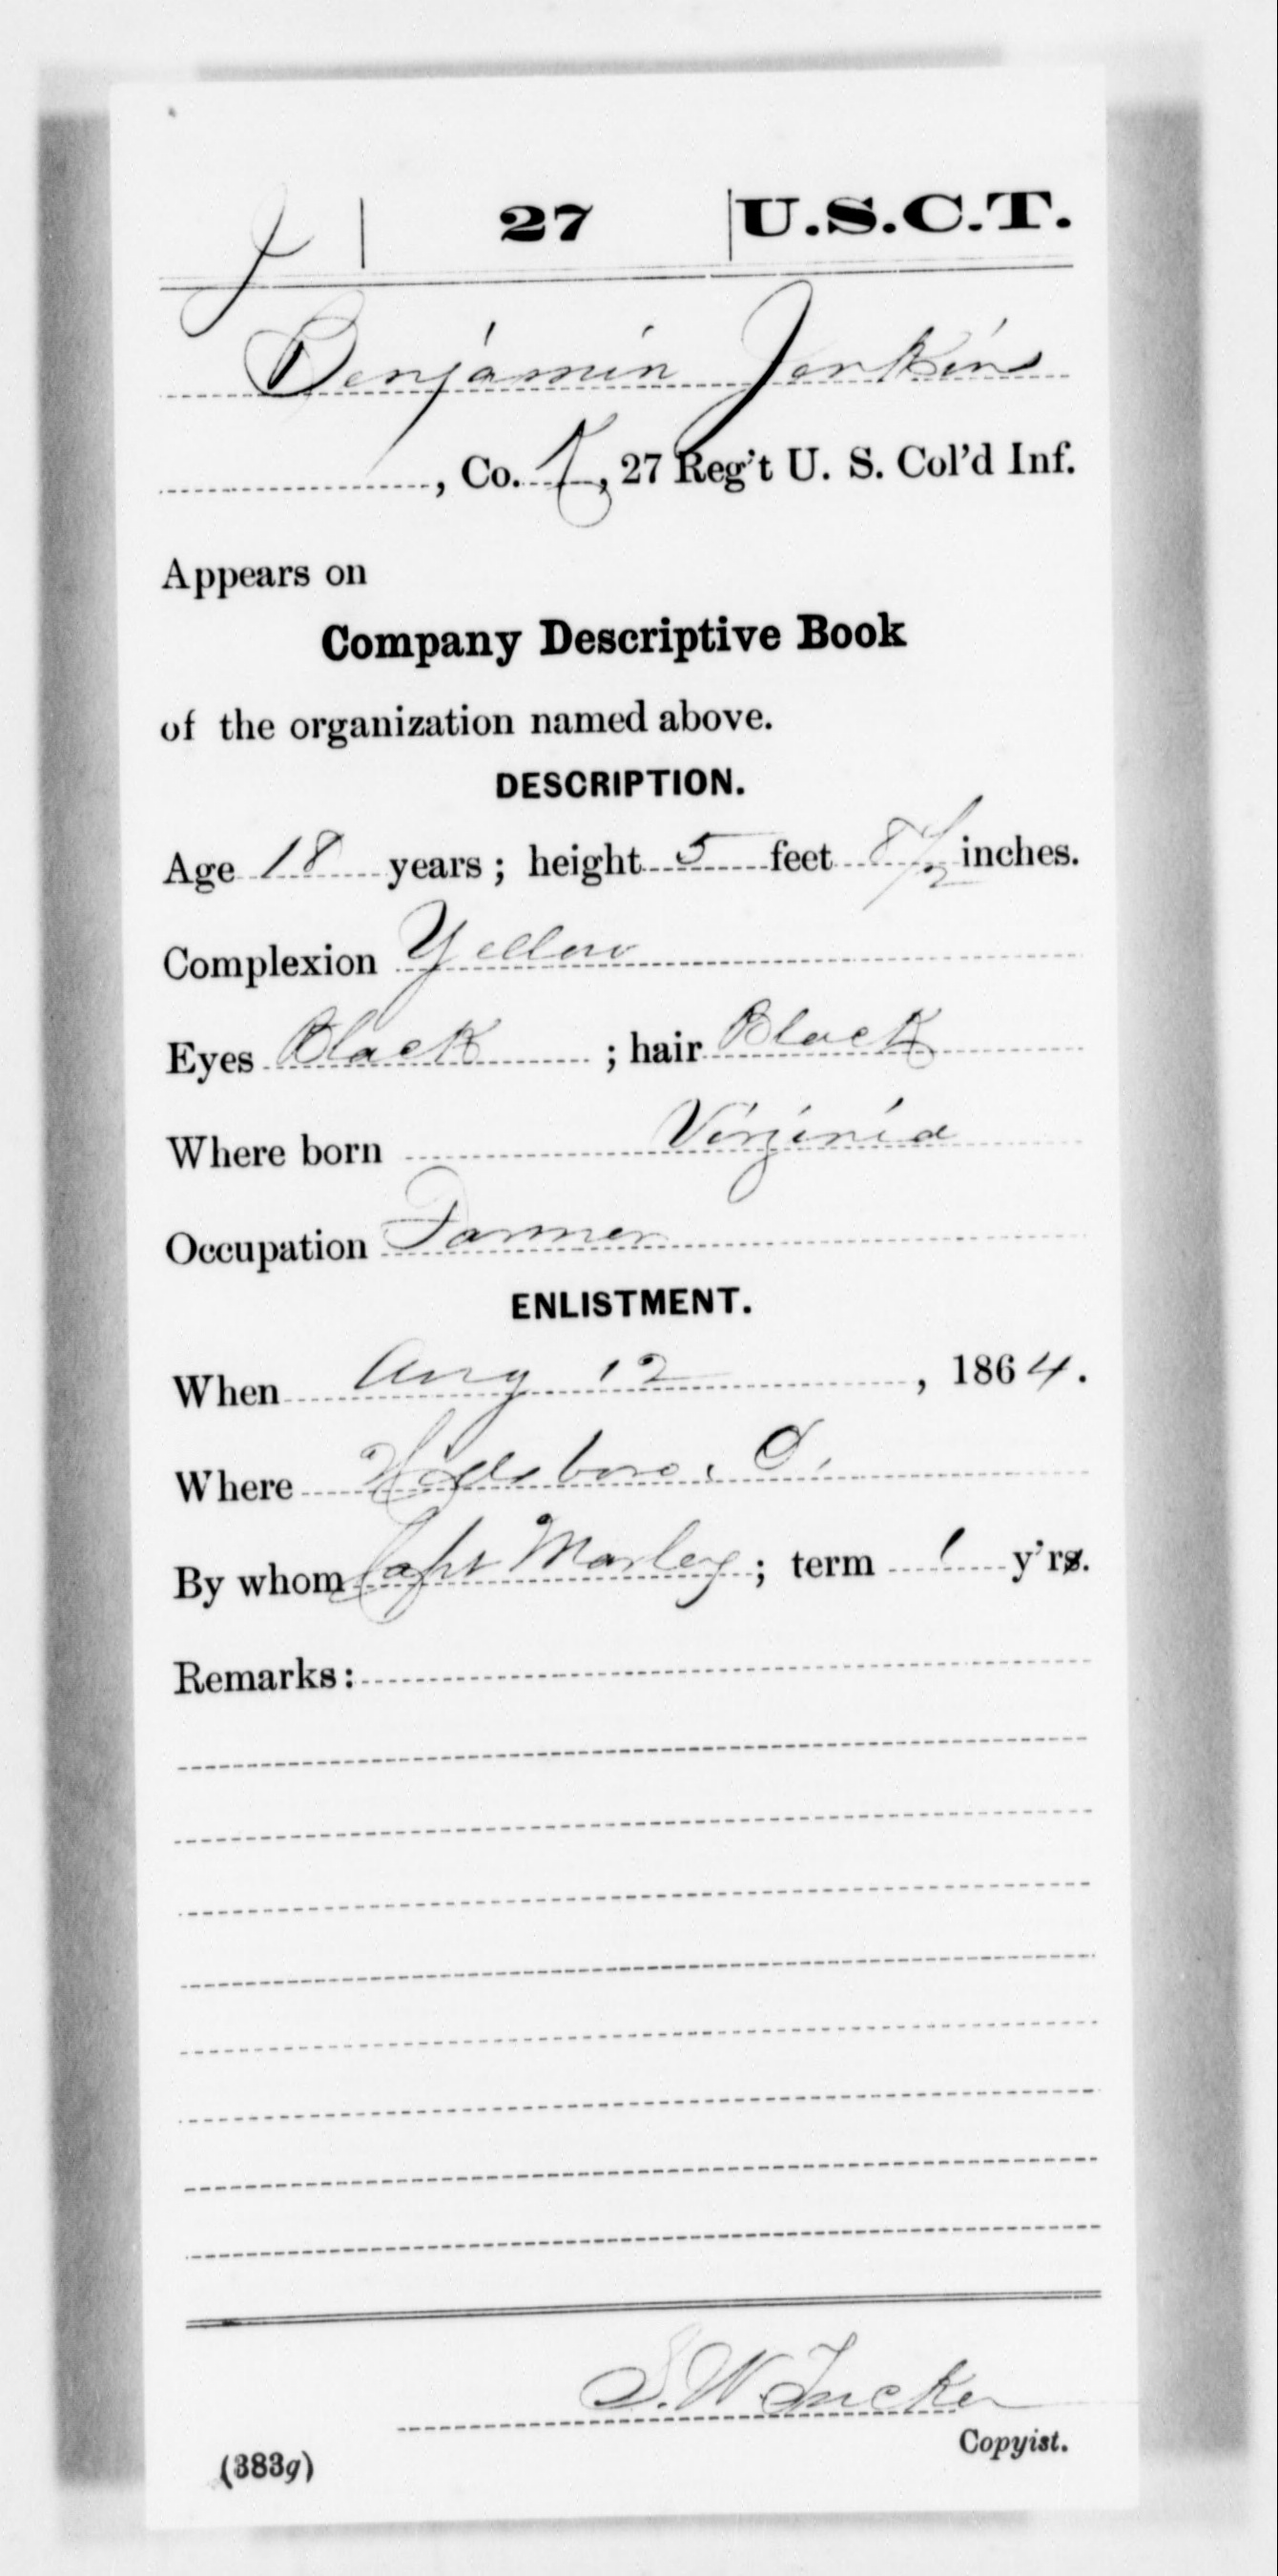 J | 27 | U.S.C.T.
Benjamin Jenkins
, Co. K, 27 Reg't U. S. Col'd Inf.
Appears on
Company Descriptive Book
of the organization named above.
DESCRIPTION.
Age 18 years; height 5 feet 8 1/2 inches.
Complexion Yellow
Eyes Black; hair Black
Where born Virginia
Occupation Farmer
ENLISTMENT.
When Aug 12, 1864.
Where Hillsboro, O.
By whom Capt Marley; term 1 y'rs.
Remarks:
S. W. Tucker
Copyist.
(383g)